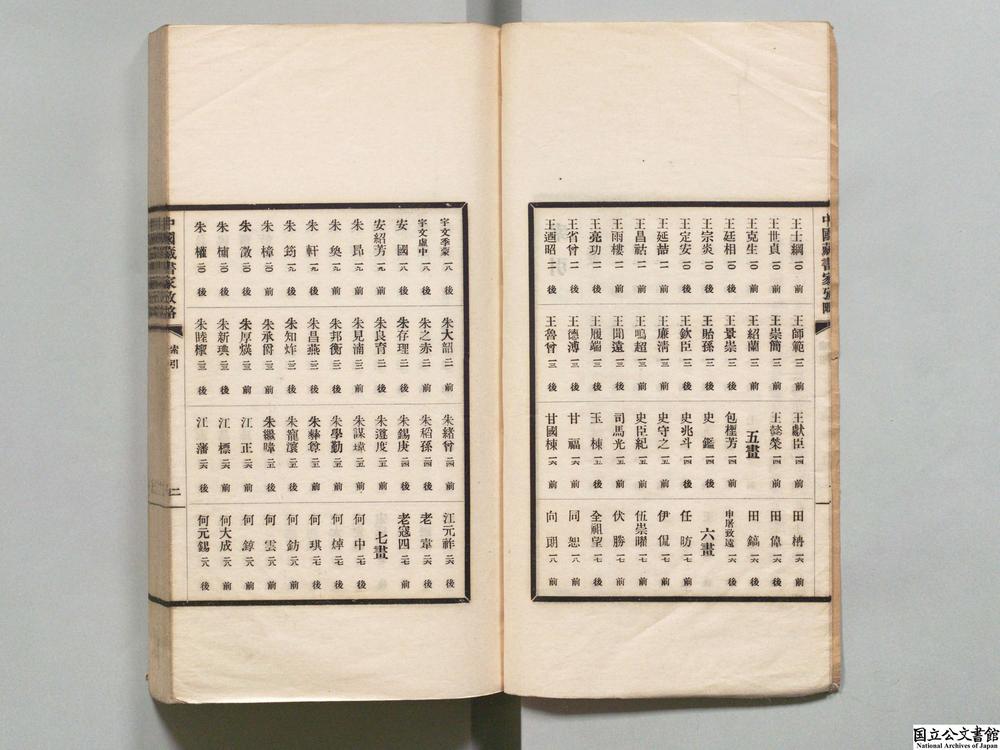 中國藏書家攷略
王士綱 一〇 前
王世貞 一〇 前
王克生 一〇 前
王廷相 一〇 後
王宗炎 一〇 後
王定安 一〇 後
王延喆 一一 前
王昌祜 一一 前
王雨樓 一一 前
王亮功 一一 後
王省曾 一一 後
王迺昭 一一 後
王師範 一二 前
王崇簡 一二 前
王紹蘭 一二 前
王景崇 一二 後
王貽孫 一二 後
王欽臣 一二 後
王廉清 一三 前
王鳴超 一三 前
王聞遠 一三 前
王履端 一三 後
王德溥 一三 後
王魯曾 一三 後
王獻臣 一四 前
王懿榮 一四 前
五畫
包檉芳 一四 前
史鑑 一四 後
史兆斗 一四 後
史守之 一五 前
史臣紀 一五 前
司馬光 一五 前
玉棟 一五 後
甘福 一六 前
甘國棟 一六 後
田柟 一六 後
田偉 一六 後
田鎬 一六 後
申屠致遠 一六 後
六畫
任昉 一七 前
伊侃 一七 前
伍崇曜 一七 前
伏勝 一七 後
全祖望 一七 後
同恕 一八 前
向朗 一八 前
宇文季蒙 一八 後
宇文虛中 一八 後
安國 一八 後
安紹芳 一九 前
朱昂 一九 前
朱奐 一九 前
朱軒 一九 後
朱筠 一九 後
朱樟 二〇 前
朱澂 二〇 前
朱櫹 二〇 前
朱權 二〇 後
朱大韶 二一 前
朱之赤 二一 前
朱存理 二一 後
朱良育 二一 後
朱見湳 二二 前
朱邦衡 二二 前
朱昌燕 二二 後
朱知烊 二二 後
朱承爵 二三 前
朱厚煐 二三 前
朱新㙉 二三 後
朱睦㮮 二三 後
朱緒曾 二四 前
朱稻孫 二四 前
朱錫庚 二四 後
朱遵度 二五 前
朱謀㙔 二五 前
朱學勤 二五 前
朱彝尊 二五 前
朱寵瀼 二五 後
朱繼暐 二五 後
江正 二六 前
江標 二六 前
江藩 二六 後
江元祚 二六 後
老韋 二六 後
老寇四 二七 前
七畫
何中 二七 前
何焯 二七 前
何琪 二七 後
何鈁 二七 後
何雲 二八 前
何錞 二八 前
何大成 二八 前
何元錫 二八 後
中國藏書家攷略
索引
二
国立公文書館
National Archives of Japan